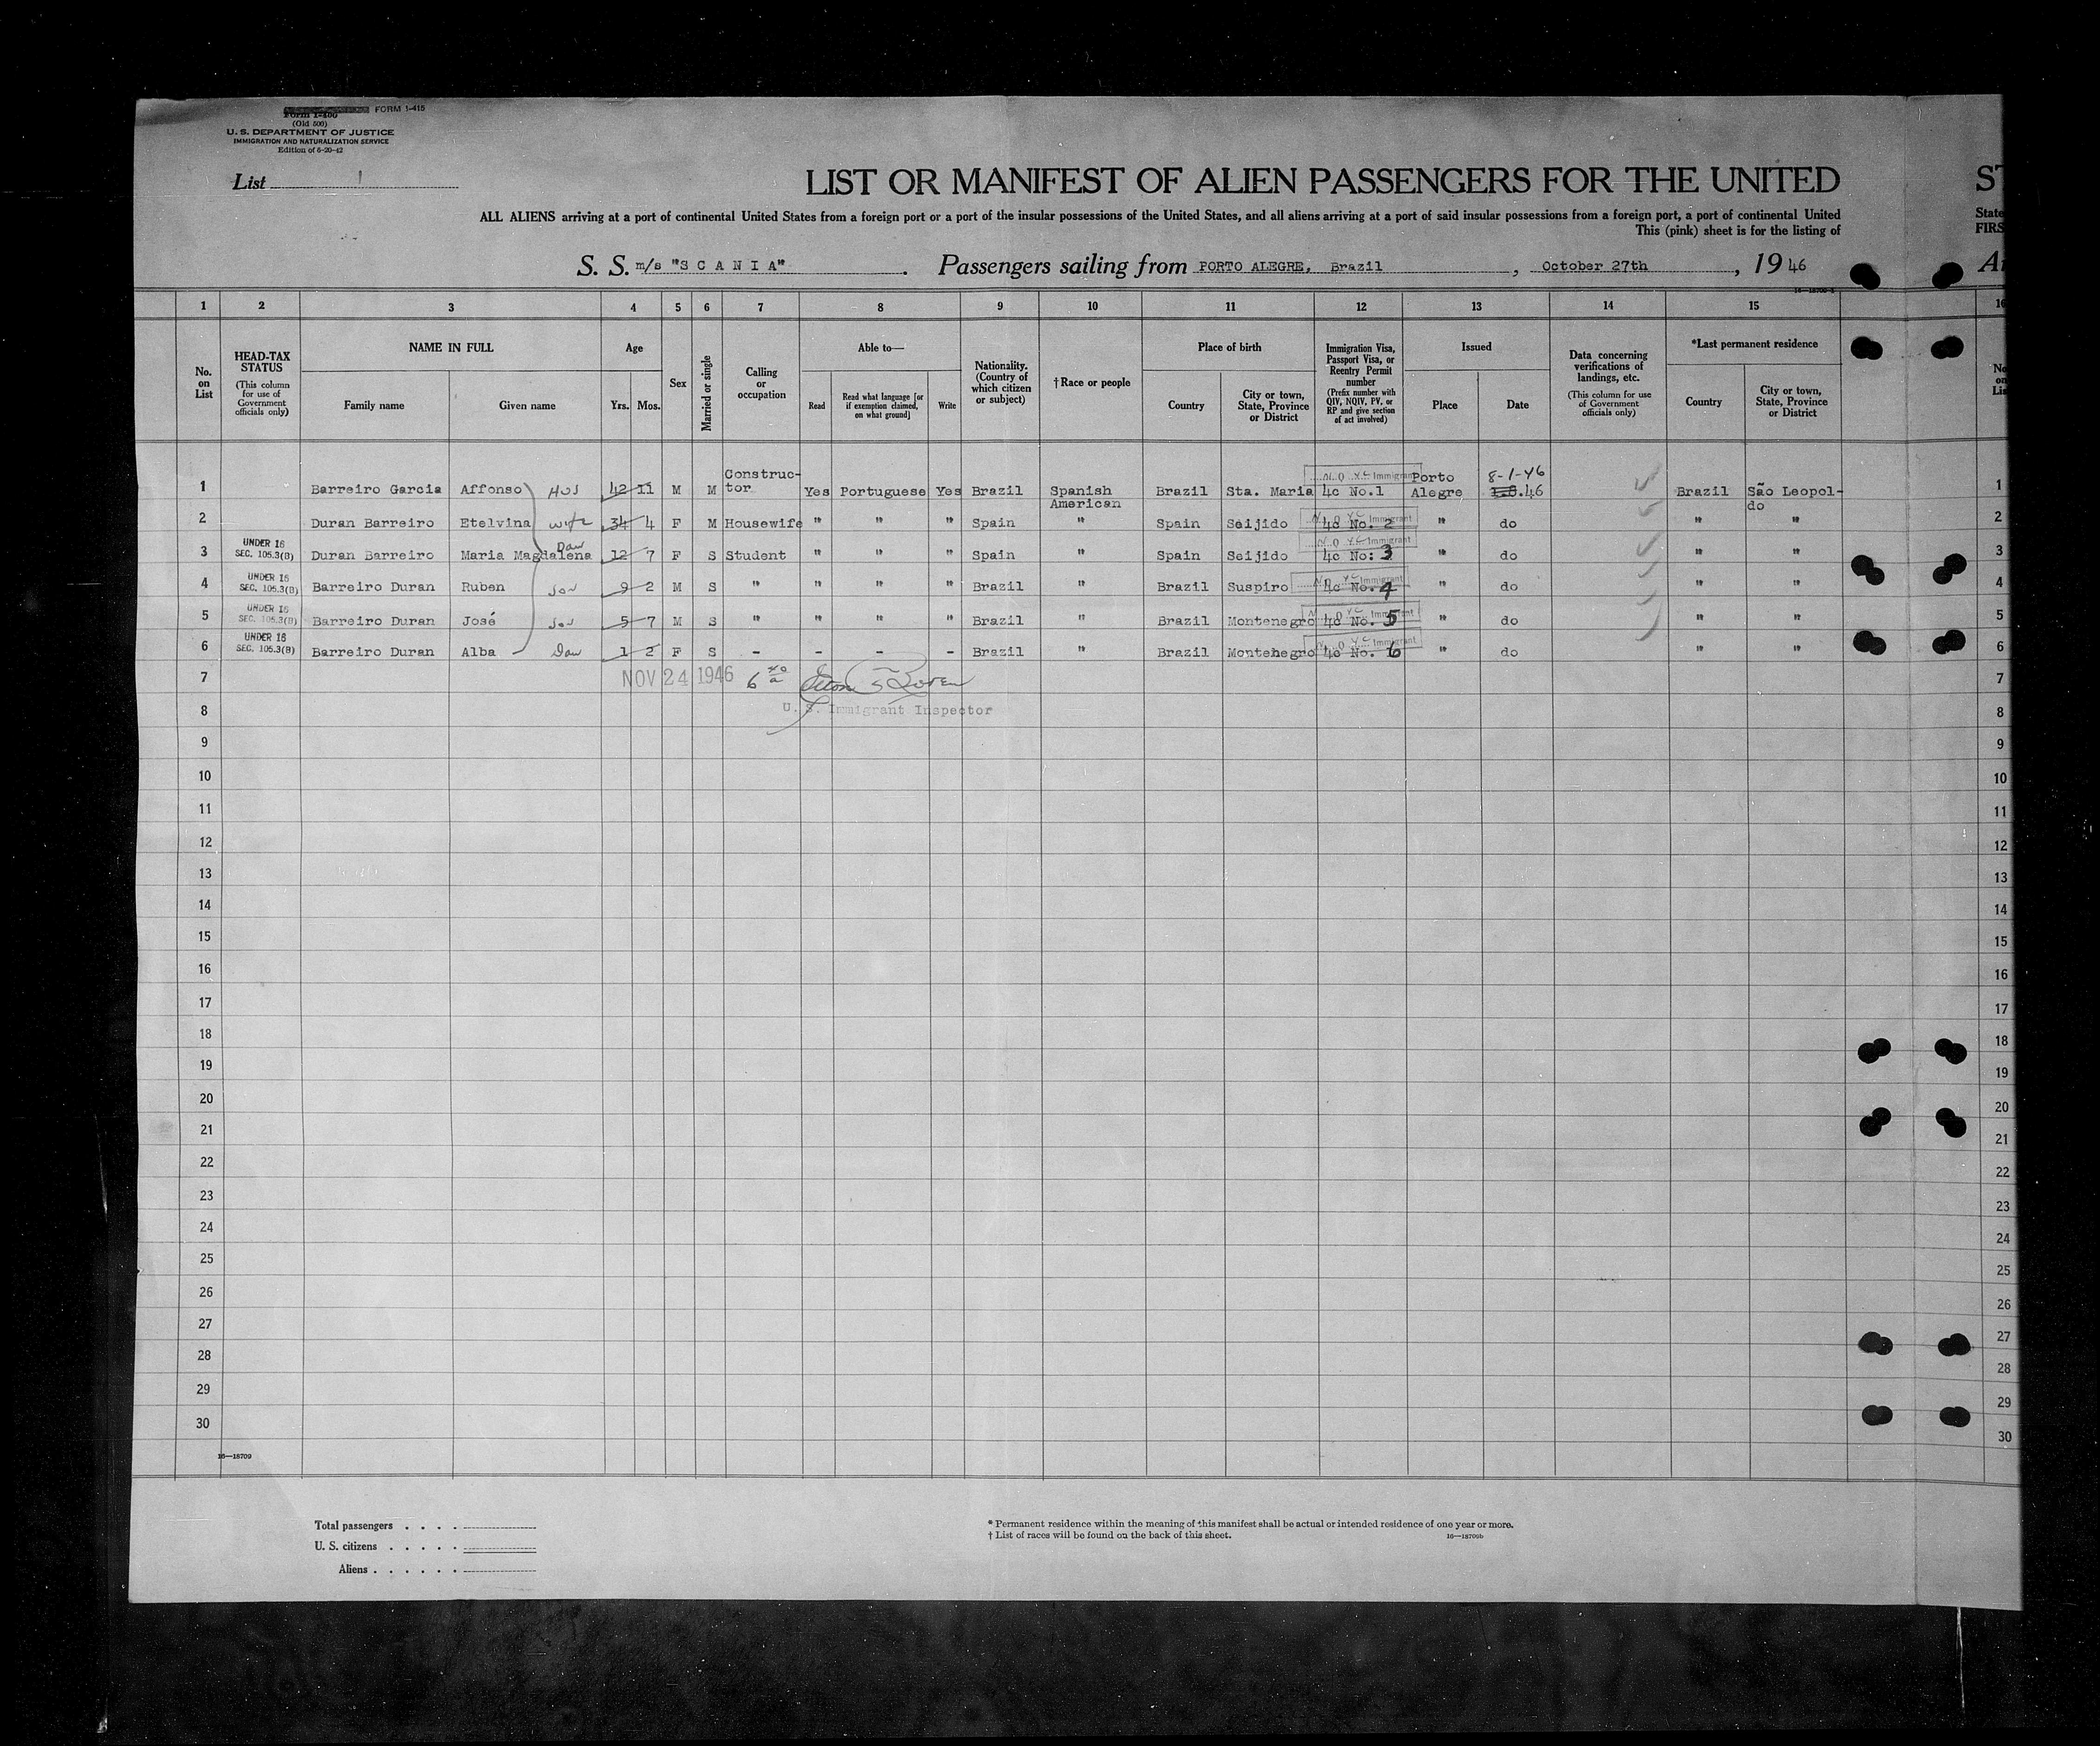 FORM 1-415
Form I-400
(Old 500)
U. S. DEPARTMENT OF JUSTICE
IMMIGRATION AND NATURALIZATION SERVICE
Edition of 6-20-42
List 1
LIST OR MANIFEST OF ALIEN PASSENGERS FOR THE UNITED ST
ALL ALIENS arriving at a port of continental United States from a foreign port or a port of the insular possessions of the United States, and all aliens arriving at a port of said insular possessions from a foreign port, a port of continental United State
This (pink) sheet is for the listing of FIRS
S. S. m/s "S C A N I A" . Passengers sailing from PORTO ALEGRE, Brazil , October 27th , 19 46 A
16—18709-1
1 2 3 4 5 6 7 8 9 10 11 12 13 14 15 16
No. on List
HEAD-TAX STATUS
(This column for use of Government officials only)
NAME IN FULL
Family name Given name
Age
Yrs. Mos.
Sex
Married or single
Calling or occupation
Able to—
Read
Read what language [or if exemption claimed, on what ground]
Write
Nationality. (Country of which citizen or subject)
†Race or people
Place of birth
Country
City or town, State, Province or District
Immigration Visa, Passport Visa, or Reentry Permit number
(Prefix number with QIV, NQIV, PV, or RP and give section of act involved)
Issued
Place Date
Data concerning verifications of landings, etc.
(This column for use of Government officials only)
*Last permanent residence
Country
City or town, State, Province or District
No on Lis
1 Barreiro Garcia Affonso Hus 42 11 M M Construc-tor Yes Portuguese Yes Brazil Spanish American Brazil Sta. Maria N.Q. Immigrant 4c No.1 Porto Alegre 8-1-46 .46 Brazil São Leopol-do 1
2 Duran Barreiro Etelvina wife 34 4 F M Housewife " " " Spain " Spain Seijido Immigrant 4c No. 2 " do " " 2
3 UNDER 16 SEC. 105.3(B) Duran Barreiro Maria Magdalena Dau 12 7 F S Student " " " Spain " Spain Seijido Immigrant 4c No: 3 " do " " 3
4 UNDER 16 SEC. 105.3(B) Barreiro Duran Ruben Son 9 2 M S " " " " Brazil " Brazil Suspiro Immigrant 4c No. 4 " do " " 4
5 UNDER 16 SEC. 105.3(B) Barreiro Duran José Son 5 7 M S " " " " Brazil " Brazil Montenegro Immigrant 4c No. 5 " do " " 5
6 UNDER 16 SEC. 105.3(B) Barreiro Duran Alba Dau 1 2 F S - - - - Brazil " Brazil Montenegro Immigrant 4c No. 6 " do " " 6
7 NOV 24 1946 6 7
8 U. S. Immigrant Inspector 8
9 9
10 10
11 11
12 12
13 13
14 14
15 15
16 16
17 17
18 18
19 19
20 20
21 21
22 22
23 23
24 24
25 25
26 26
27 27
28 28
29 29
30 30
16—18709
Total passengers . . . .
U. S. citizens . . . . .
Aliens . . . . . .
* Permanent residence within the meaning of this manifest shall be actual or intended residence of one year or more.
† List of races will be found on the back of this sheet.
16—18709b